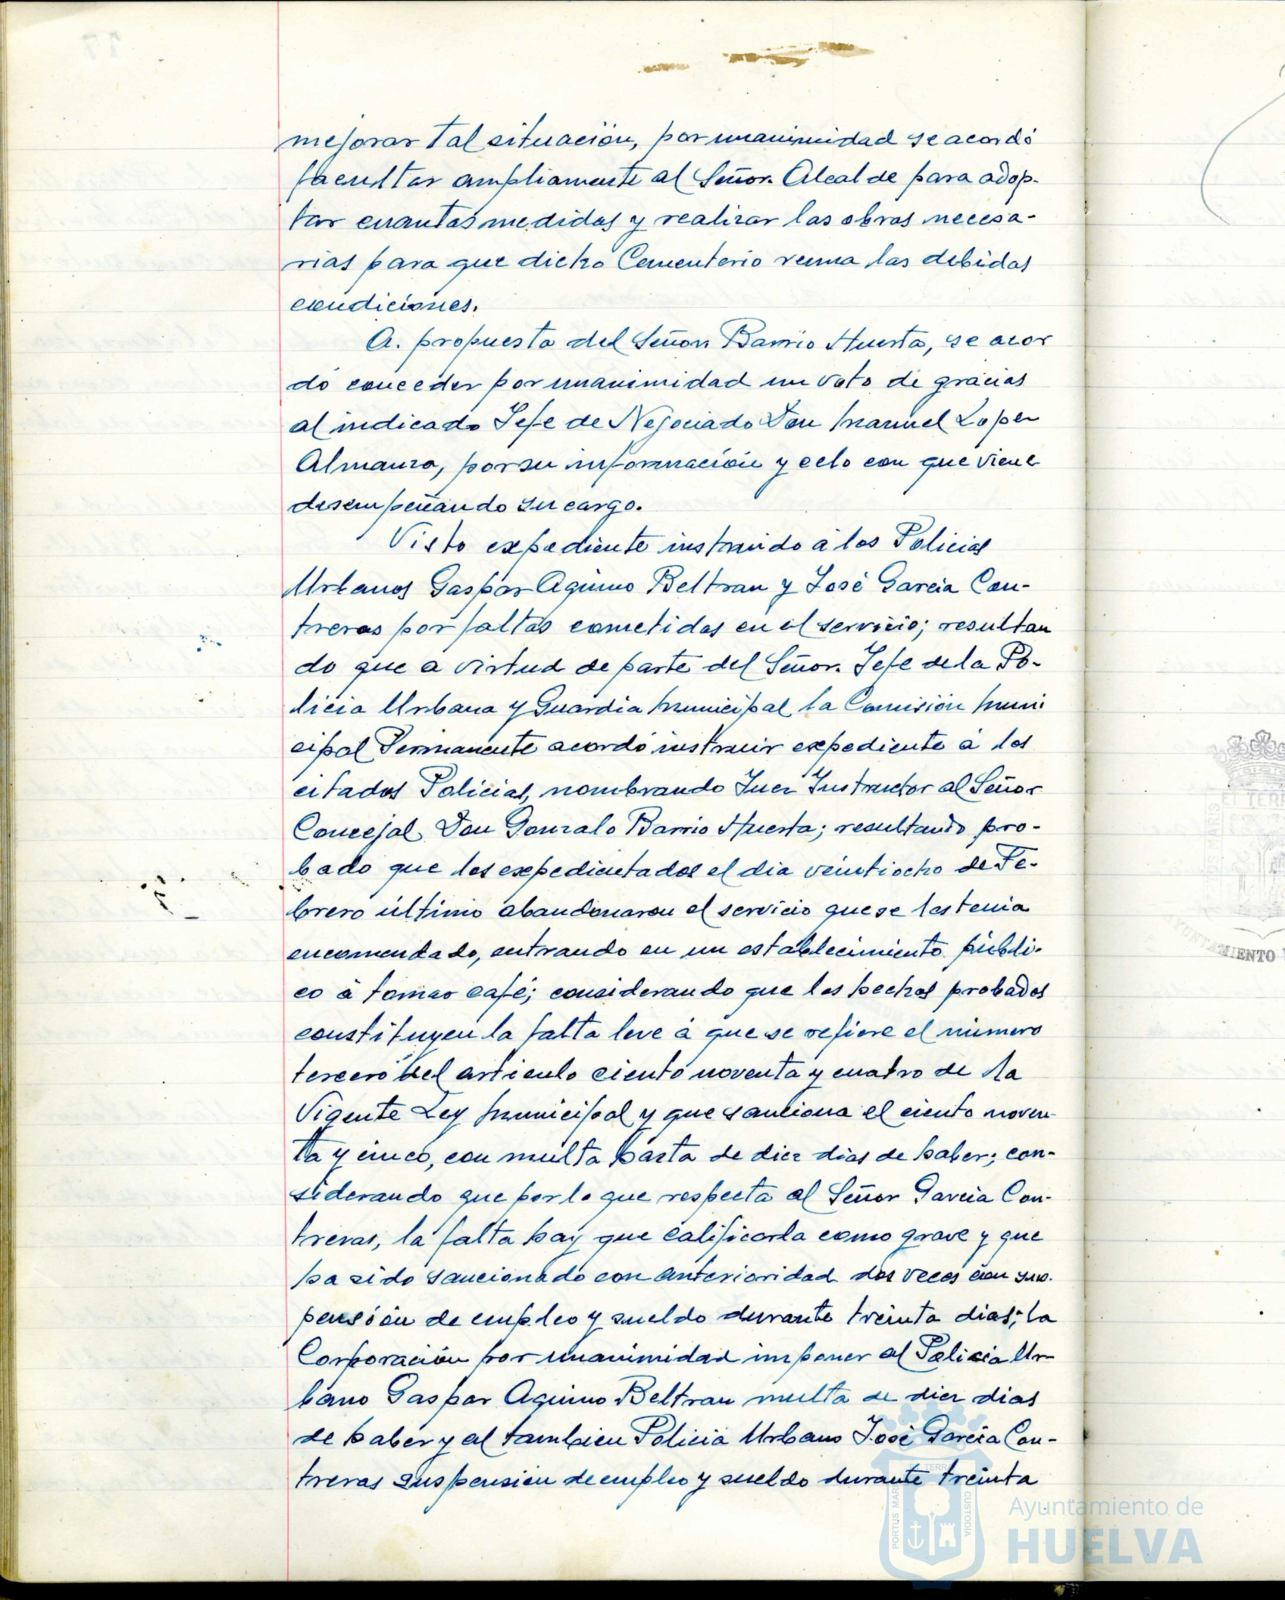 mejorar tal situación, por unanimidad se acordó
facultar ampliamente al Señor Alcalde para adop-
tar cuantas medidas y realizar las obras necesa-
rias para que dicho Cementerio reuna las debidas
condiciones.
A. propuesta del Señor Barrio Huerta, se acor
dó conceder por unanimidad un voto de gracias
al indicado Jefe de Negociado Don Manuel Lopez
Almanza, por su información y celo con que viene
desempeñando su cargo.
Visto expediente instruido á los Policias
Urbanos Gaspar Aquino Beltran y José Garcia Con-
treras por faltas cometidas en el servicio; resultan
do que a virtud de parte del Señor Jefe de la Po-
licia Urbana y Guardia Municipal la Comisión Muni
cipal Permanente acordó instruir expediente á los
citados Policias, nombrando Juez Instructor al Señor
Concejal Don Gonzalo Barrio Huerta; resultando pro-
bado que los expedientados el dia veintiocho de Fe-
brero último abandonaron el servicio que se les tenia
encomendado, entrando en un establecimiento públi-
co á tomar café; considerando que los hechos probados
constituyen la falta leve á que se refiere el número
tercero del articulo ciento noventa y cuatro de la
Vigente Ley Municipal y que sanciona el ciento noven-
ta y cinco, con multa hasta de diez dias de haber; con-
siderando que por lo que respecta al Señor Garcia Con-
treras, la falta hay que calificarla como grave y que
ha sido sancionado con anterioridad dos veces con sus-
pensión de empleo y sueldo durante treinta dias; la
Corporación por unanimidad imponer al Policia Ur
bano Gaspar Aquino Beltran multa de diez dias
de haber y al tambien Policia Urbano José Garcia Con-
treras suspensión de empleo y sueldo durante treinta
Ayuntamiento de
HUELVA